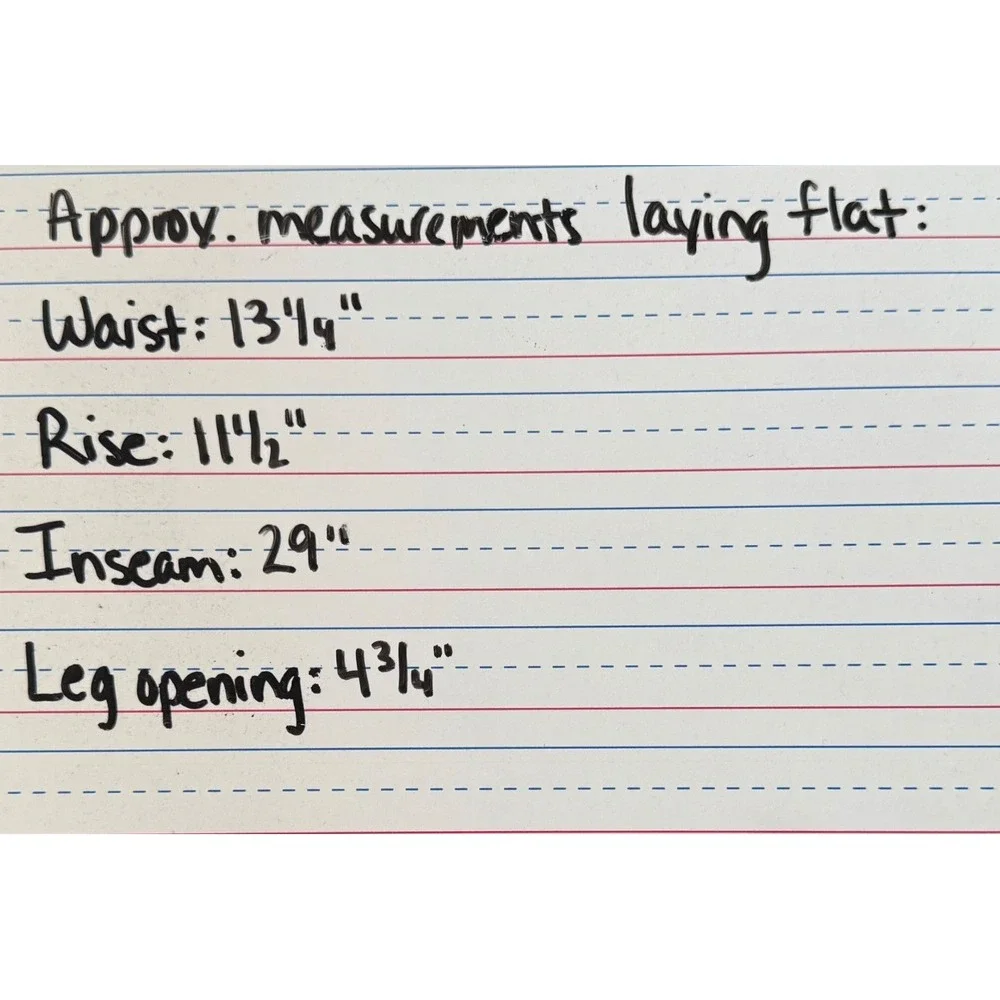 Approx. measurements laying flat:
Waist: 13 1/4"
Rise: 11 1/2"
Inseam: 29"
Leg opening: 4 3/4"